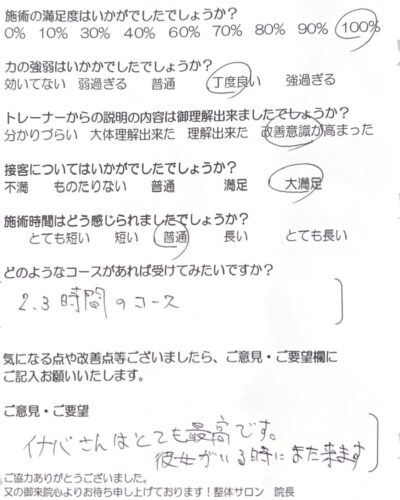 施術の満足度はいかがでしたでしょうか?
0% 10% 30% 40% 60% 70% 80% 90% 100%
力の強弱はいかかでしたでしょうか?
効いてない 弱過ぎる 普通 丁度良い 強過ぎる
トレーナーからの説明の内容は御理解出来ましたでしょうか?
分かりづらい 大体理解出来た 理解出来た 改善意識が高まった
接客についてはいかがでしたでしょうか?
不満 ものたりない 普通 満足 大満足
施術時間はどう感じられましたでしょうか?
とても短い 短い 普通 長い とても長い
どのようなコースがあれば受けてみたいですか?
2、3時間のコース
気になる点や改善点等ございましたら、ご意見・ご要望欄に
ご記入お願いいたします。
ご意見・ご要望
イナバさんはとても最高です。
彼女がいる時にまた来ます
ご協力ありがとうございました。
又の御来院心よりお待ち申し上げております!整体サロン 院長